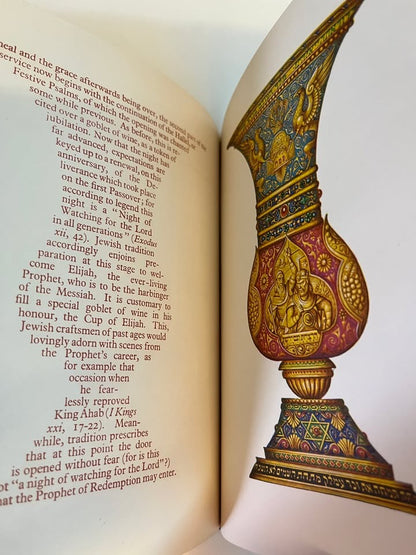 meal and the grace afterwards being over, the second part of the
service now begins with the continuation of the Hallel, or
Festive Psalms, of which the opening was chanted
some while previous. As before, this is re-
cited over a goblet of wine, as a token of
jubilation. Now that the night has
far advanced, expectations are
keyed up to a renewal, on this
anniversary, of the De-
liverance which took place
on the first Passover; for
according to legend this
night is a "Night of
Watching for the Lord
in all generations" (Exodus
xii, 42). Jewish tradition
accordingly enjoins pre-
paration at this stage to wel-
come Elijah, the ever-living
Prophet, who is to be the harbinger
of the Messiah. It is customary to
fill a special goblet of wine in his
honour, the Cup of Elijah. This,
Jewish craftsmen of past ages would
lovingly adorn with scenes from
the Prophet's career, as
for example that
occasion when
he fear-
lessly reproved
King Ahab (I Kings
xxi, 17-22). Mean-
while, tradition prescribes
that at this point the door
is opened without fear (for is this
not "a night of watching for the Lord"?)
that the Prophet of Redemption may enter.
מתחת השמים